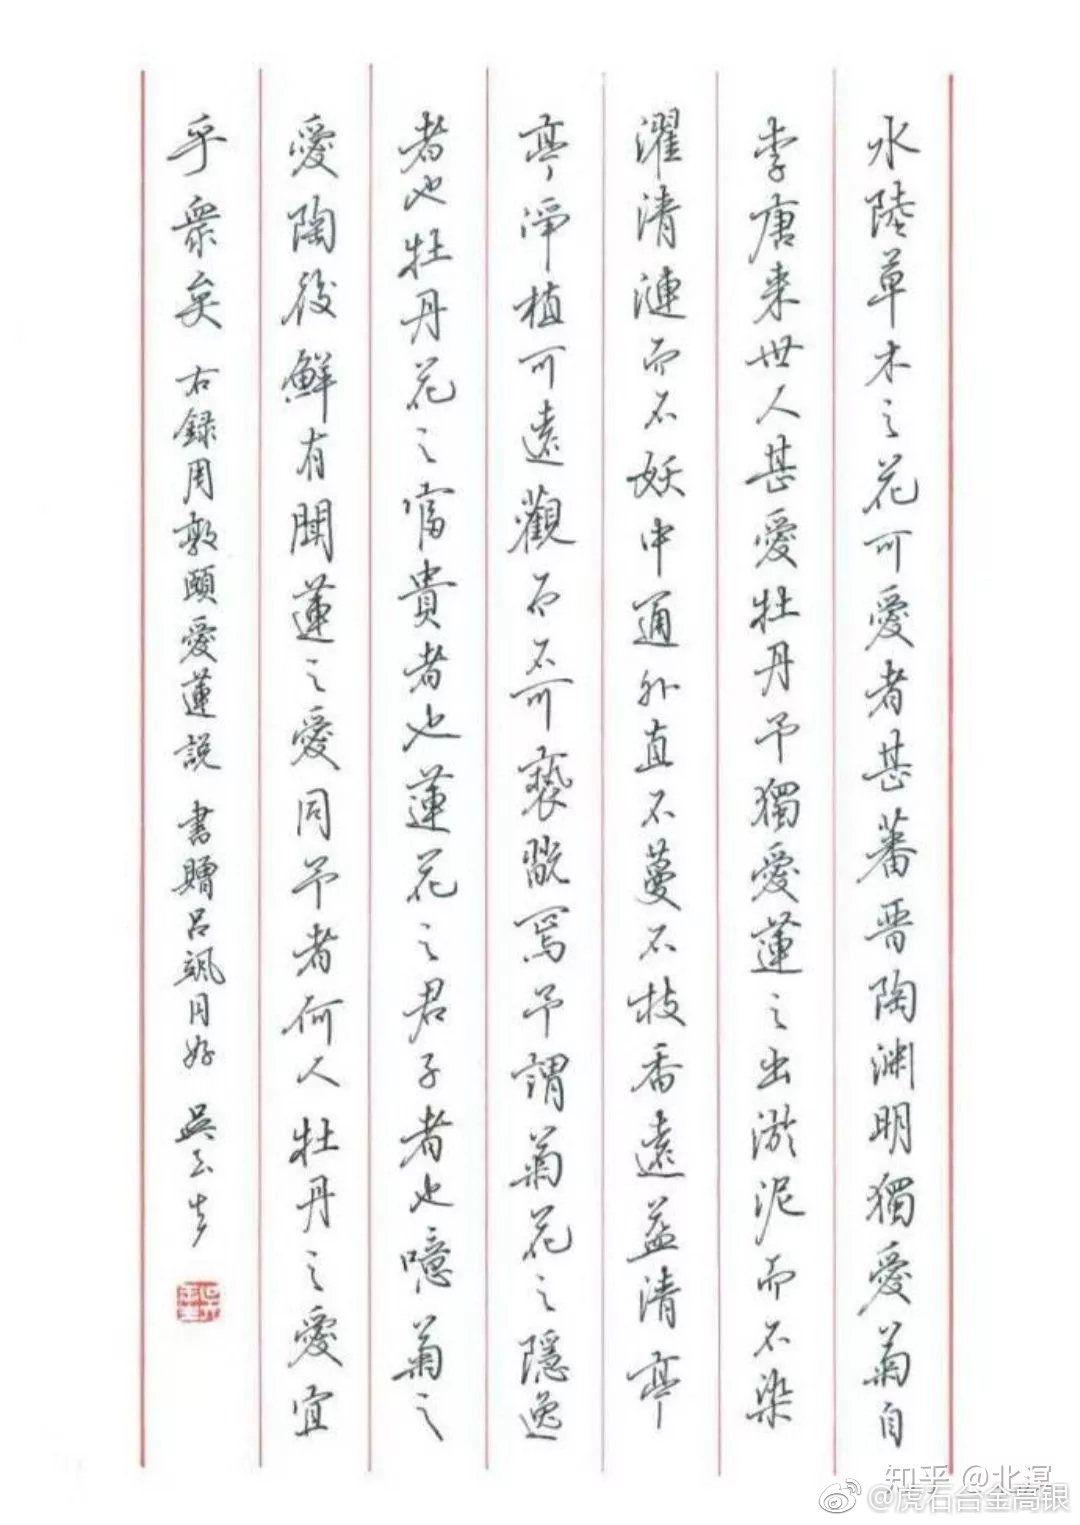 水陸草木之花可愛者甚蕃晋陶渊明獨愛菊自
李唐来世人甚愛牡丹予獨愛蓮之出淤泥而不染
濯清漣而不妖中通外直不蔓不枝香遠益清亭
亭淨植可遠觀而不可褻翫焉予謂菊花之隱逸
者也牡丹花之富貴者也蓮花之君子者也噫菊之
愛陶後鮮有聞蓮之愛同予者何人牡丹之愛宜
乎衆矣 右録周敦頤愛蓮説 書贈呂颯同好 吳玉生
知乎 @北溟
@虎石台金高银